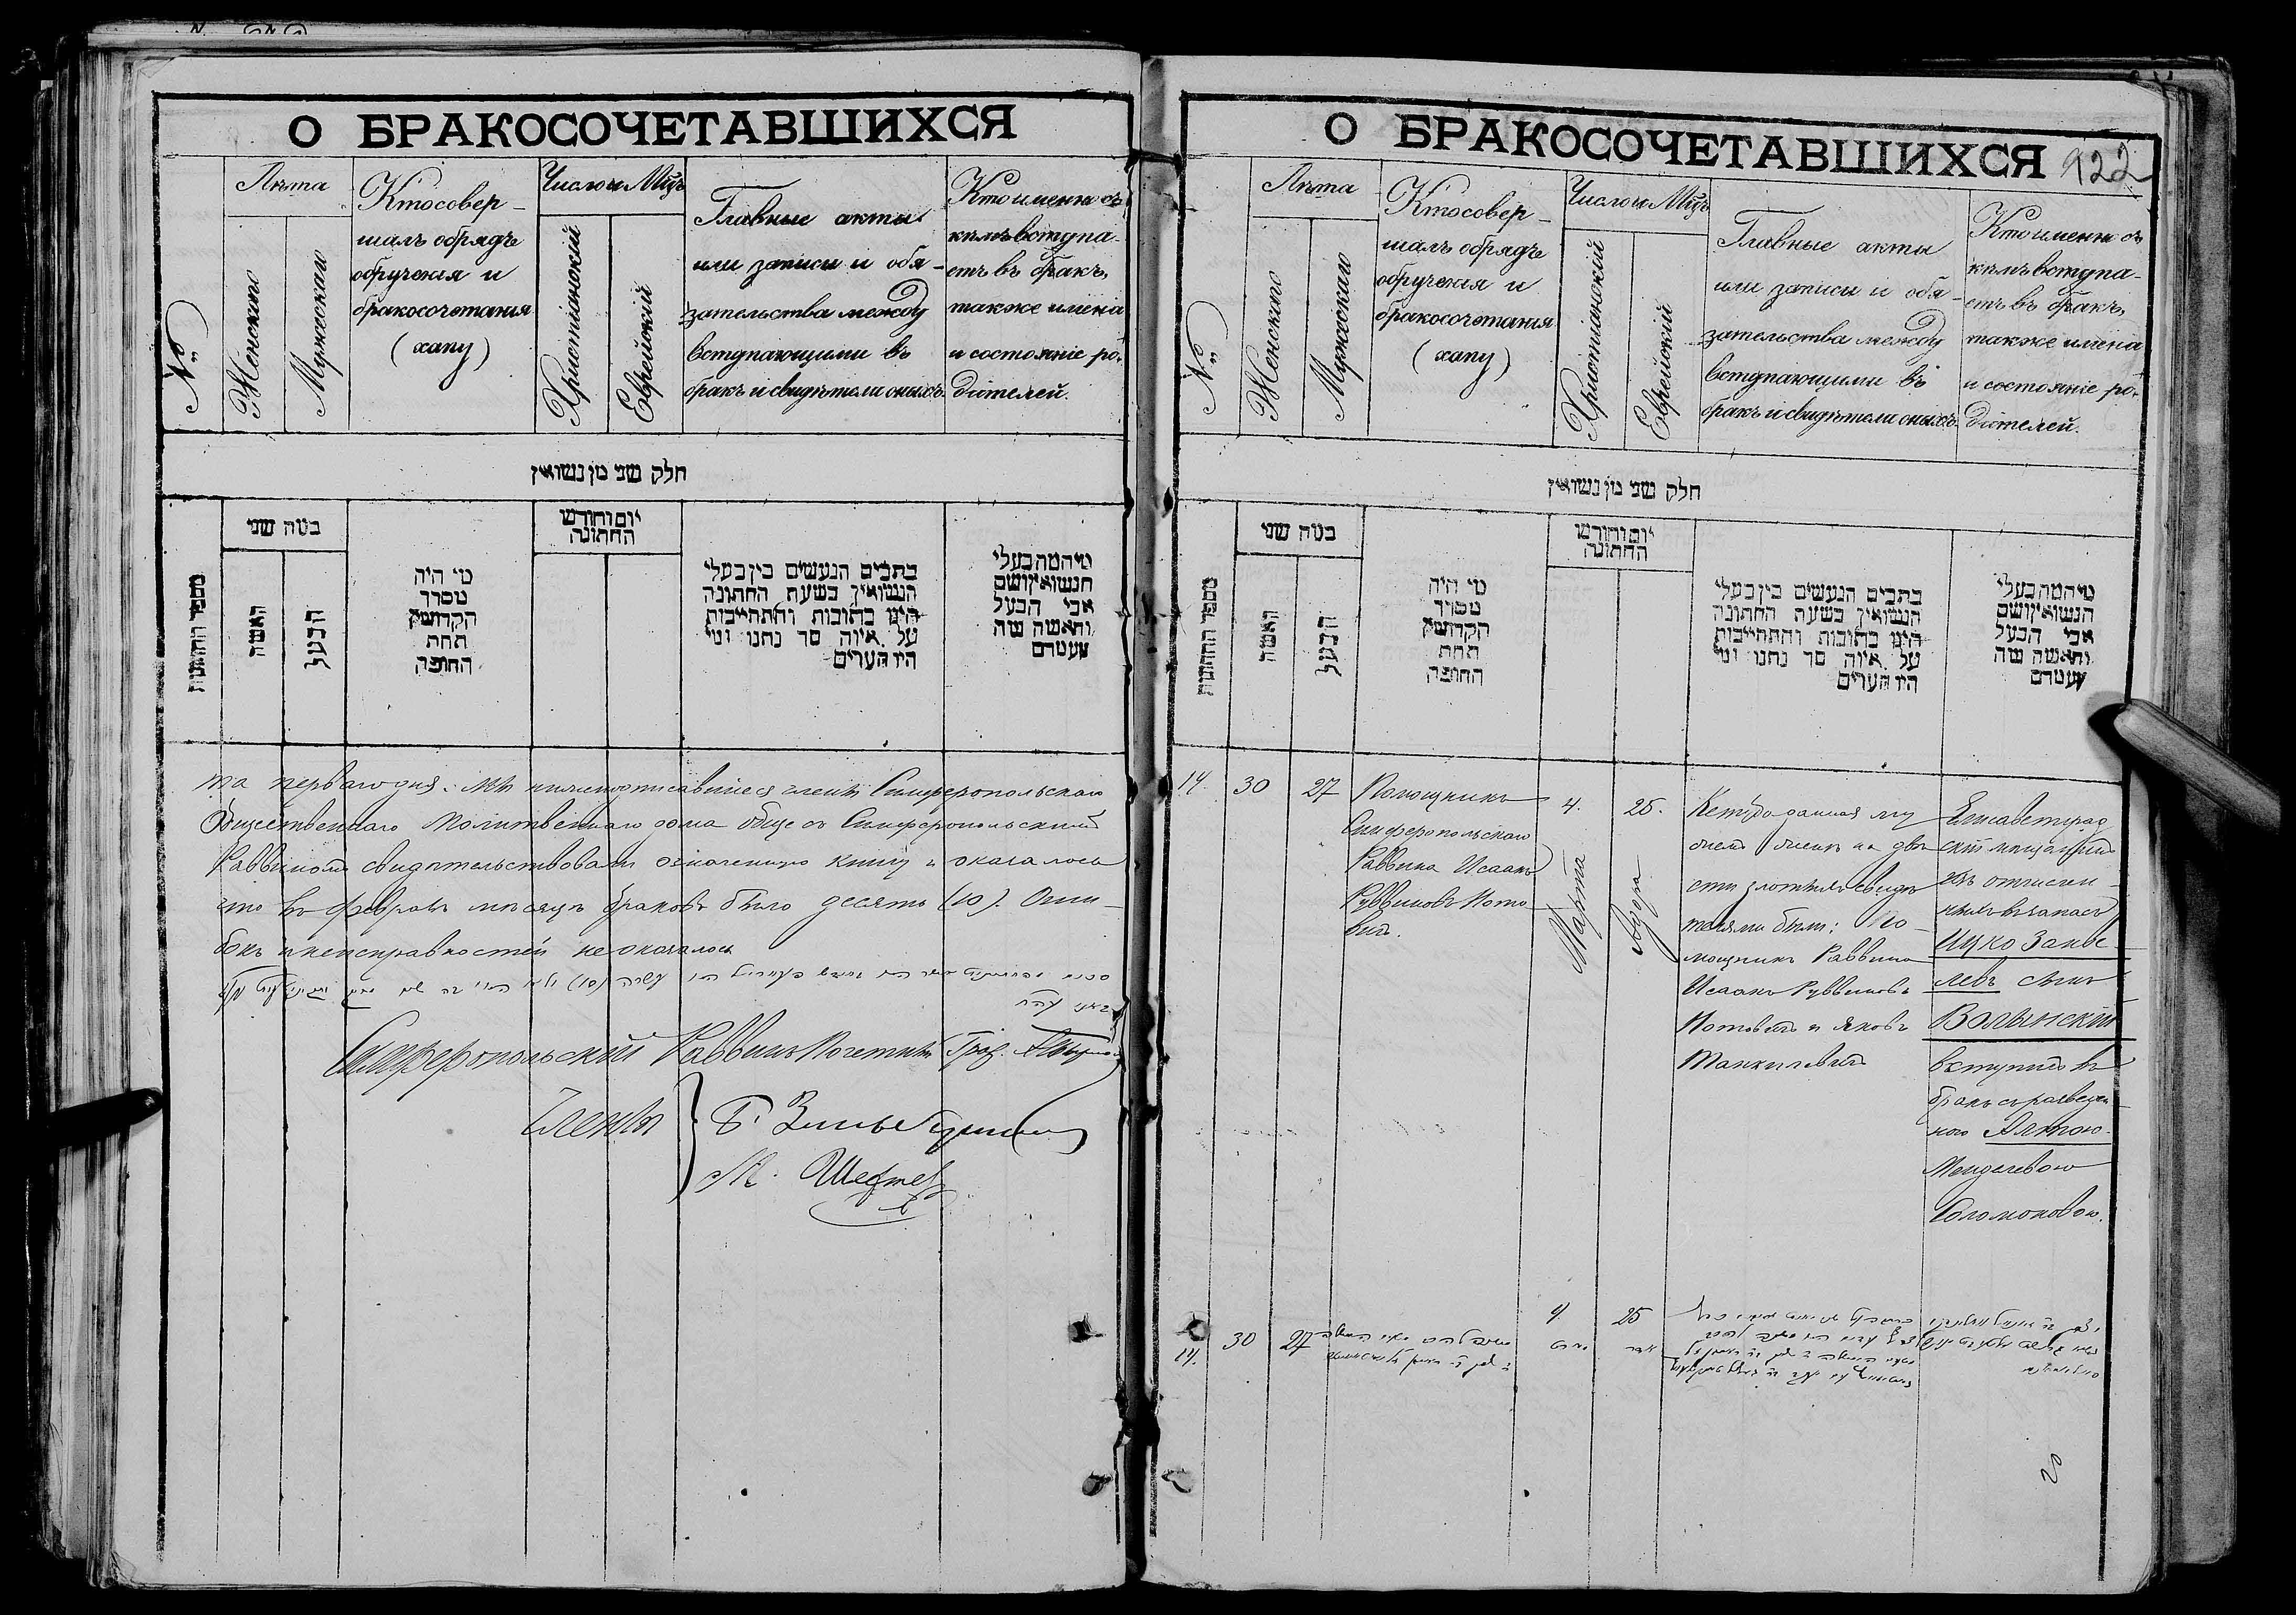 О БРАКОСОЧЕТАВШИХСЯ
№
Лѣта
Женскаго
Мужскаго
Кто совер-
шалъ обрядъ
обрученія и
бракосочетанія
(хапу)
Число и Мѣцъ
Христіянскій
Еврейскій
Главные акты
или записи и обя-
зательства между
вступающими въ
бракъ и свидѣтели оныхъ.
Кто именно съ
кѣмъ вступа-
етъ въ бракъ,
также имена
и состояніе ро-
дителей.
חלק שני מן נשואין
מספר החתונות
כמה שני
האשה
הבעל
מי היה
מסדר
הקדושין
תחת
החופה
יום וחודש
החתונה
כתבים הנעשים בין בעלי
הנשואין בשעת החתונה
היינו כתובות והתחייבות
על איזה סך נתנו ומי
היו העדים
מי המה בעלי
הנשואין ושם
אבי הבעל
והאשה ומה
מעמדם
та перваго дня. Мы нижеподписавшіеся члены Симферопольскаго
Общественнаго Молитвеннаго дома обще съ Симферопольскимъ
Раввиномъ свидѣтельствовали означенную книгу и оказалось
что въ Февралѣ мѣсяцѣ браковъ было десять (10). Оши-
бокъ и неисправностей не оказалось
עשרה (10)
Симферопольскій Раввинъ Почетный Град.
Члены
М. Шефтель
О БРАКОСОЧЕТАВШИХСЯ
922
№
Лѣта
Женскаго
Мужскаго
Кто совер-
шалъ обрядъ
обрученія и
бракосочетанія
(хапу)
Число и Мѣцъ
Христіянскій
Еврейскій
Главные акты
или записи и обя-
зательства между
вступающими въ
бракъ и свидѣтели оныхъ.
Кто именно съ
кѣмъ вступа-
етъ въ бракъ,
также имена
и состояніе ро-
дителей.
חלק שני מן נשואין
מספר החתונות
כמה שני
האשה
הבעל
מי היה
מסדר
הקדושין
תחת
החופה
יום וחודש
החתונה
כתבים הנעשים בין בעלי
הנשואין בשעת החתונה
היינו כתובות והתחייבות
על איזה סך נתנו ומי
היו העדים
מי המה בעלי
הנשואין ושם
אבי הבעל
והאשה ומה
מעמדם
14.
30
27
Помощникъ
Симферопольскаго
Раввина Исаакъ
Руввиновъ Пото-
вичъ.
4.
Марта
25.
Адара
Кетуба данная му-
жемъ женѣ на двѣ-
сти злотыхъ свидѣ-
телями были: По-
мощникъ Раввина
Исаакъ Руввиновъ
Потовичъ и Яковъ
Манкилевичъ
Елисаветград-
скій мѣщанинъ
изъ отчислен-
ныхъ въ запасъ
Ицко Занве-
левъ сынъ
Волынскій
вступилъ въ
бракъ съ разведен-
ною Алтою
Менделевою
Соломоновою.
14.
30
27
4
מארט
25
אדר
20